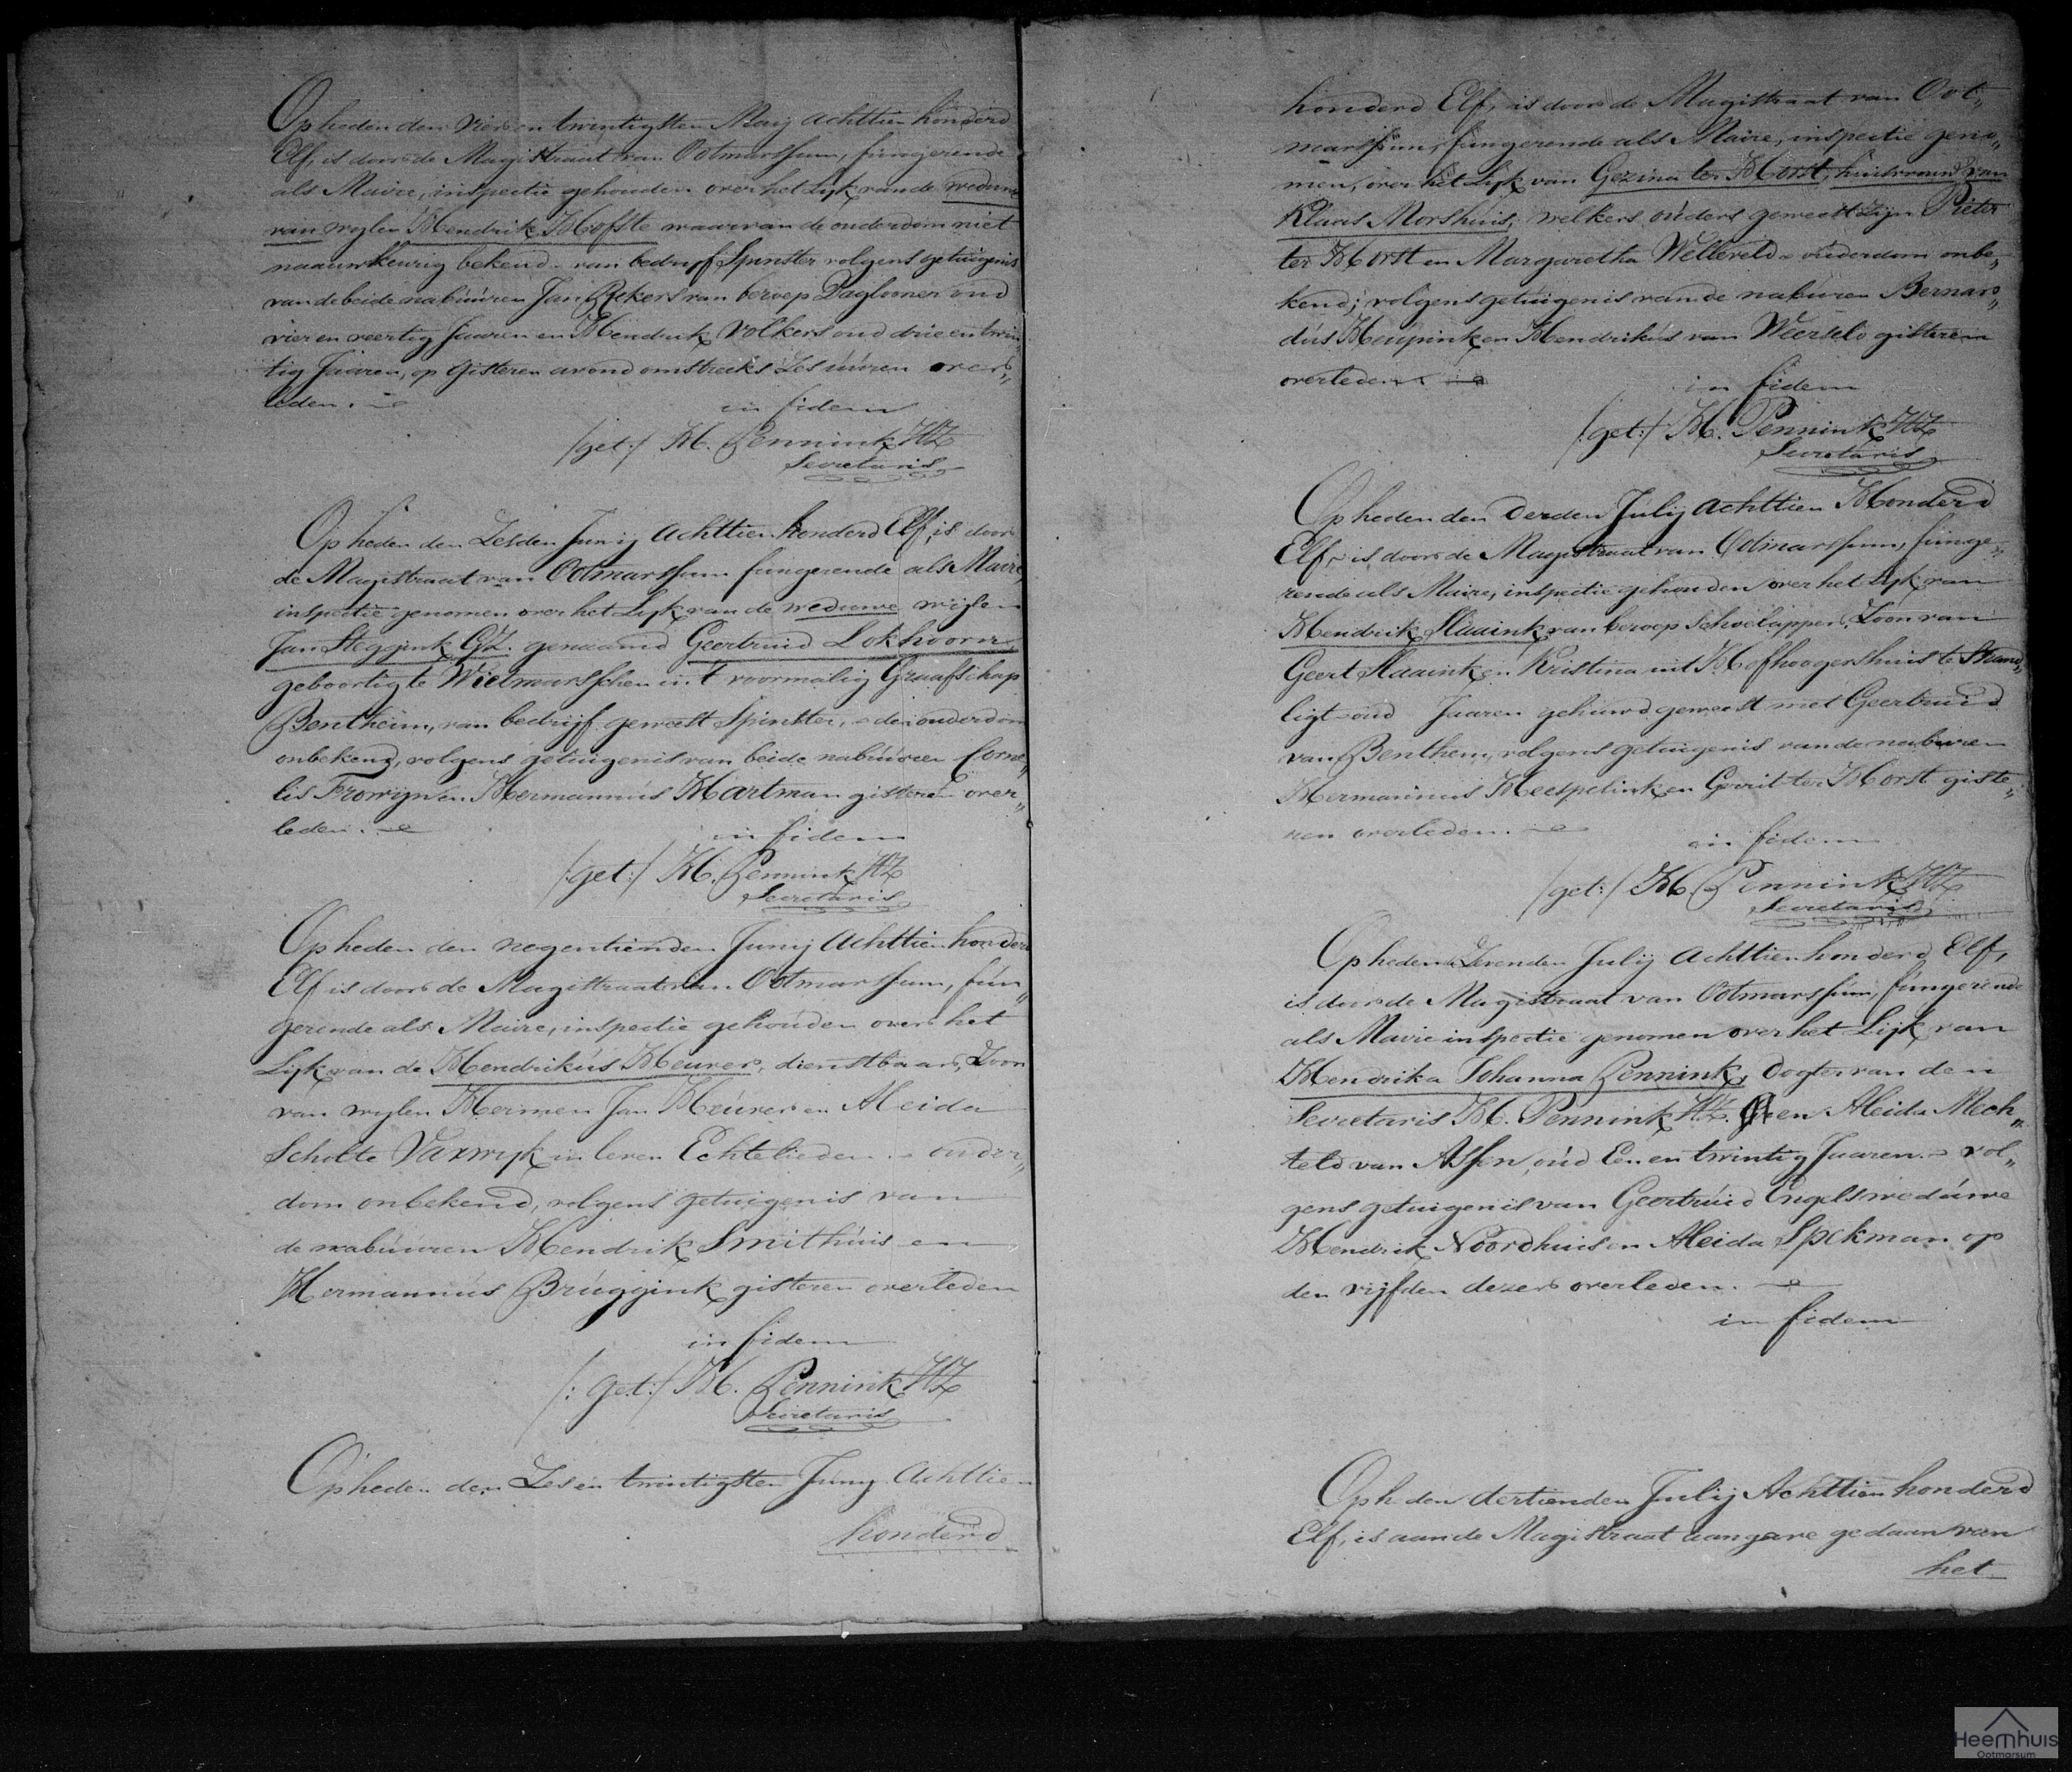 Op heden den vier en twintigsten Maij achttien honderd
Elf, is door de Magistraat van Ootmarssum, fungerende
als Maire, inspectie gehouden over het Lijk van de weduwe
van wijlen Hendrik Hofste waarvan de ouderdom niet
naauwkeurig bekend - van bedrijf Spinster volgens getuigenis
van de beide nabúúren Jan Rekers van beroep Daglooner oud
vier en veertig Jaaren en Hendrik Volkers oud drie en twin„
tig Jaaren, op Gisteren avond omstreeks Zes úúren over„
leden.
in fidem
/get:/ H. Pennink HZ
Secretaris
Op heden den Zesden Junij Achttien honderd Elf, is door
de Magistraat van Ootmarssum fungerende als Maire,
inspectie genomen over het Lijk van de weduwe wijlen
Jan Steggink GZ. genaamd Geertruid Lokhoorn
geboortig te Wietmarsschen in 't voormalig Graafschap
Bentheim, van bedrijf geweest Spinster, - den ouderdom
onbekend, volgens getuigenis van beide nabúúren Corne„
lis Frowijn en Hermannús Hartman gisteren over„
leden.
in fidem
/:get:/ H. Pennink HZ
Secretaris
Op heden den negentienden Junij Achttien honderd
Elf is door de Magistraat van Ootmarssum, fún„
gerende als Maire, inspectie gehoúden over het
Lijk van de Hendrikús Heurer, dienstbaar, Zoon
van wijlen Hermen Jan Heúrer en Aleida
Scholte Vaxwijk in leven Echtelieden - ouder„
dom onbekend, volgens getuigenis van
de nabúúren Hendrik Smithúis en
Hermannús Brúggink gisteren overleden
in fidem
/: get:/ H. Pennink HZ
Secretaris
Op heden den Zes en twintigsten Junij Achttien
honderd
honderd Elf, is door de Magistraat van Oot„
marssum, fungerende als Maire, inspectie geno„
men, over het Lijk van Gezina ter Horst, huisvrouw van
Klaas Morshuis, welkers ouders geweest zijn Pieter
ter Horst en Margaretha Welleveld - ouderdom onbe„
kend; volgens getúigenis van de naburen Bernar„
dús Heupink en Hendrikús van Weerselo gisteren
overleden.
in fidem
/:get:/ H. Pennink HZ
Secretaris
Op heden den Derden Julij Achttien Honderd
Elf, is door de Magistraat van Ootmarssum, funge„
rende als Maire, inspectie gehouden over het Lijk van
Hendrik Staaink van beroep Schoelapper, Zoon van
Geert Staaink en Kristina uit 't Hofhoogershuis te
ligt - oud Jaaren gehuwd geweest met Geertruid
van Benthem, volgens getuigenis van de naburen
Hermannus Heespelink en Gerrit ter Horst giste„
ren overleden.
in fidem
/get:/ H. Pennink HZ
Secretaris
Op heden Zevenden Julij Achttien honderd Elf,
is door de Magistraat van Ootmarssúm, fúngerende
als Mavie inspectie genomen over het Lijk van
Hendrika Johanna Pennink, Dogter van den
Secretaris H. Pennink HZ. en Aleida Mech„
teld van Assen, oúd Een en twintig Jaaren. - vol„
gens getuigenis van Geertrúid Engels wedúwe
Hendrik Noordhuis en Aleida Spekman op
den vijfden dezer overleden.
in fidem
Op h den dertienden Julij Achttien honderd
Elf, is aan de Magistraat aangave gedaan van
het
Heemhuis
Ootmarsum